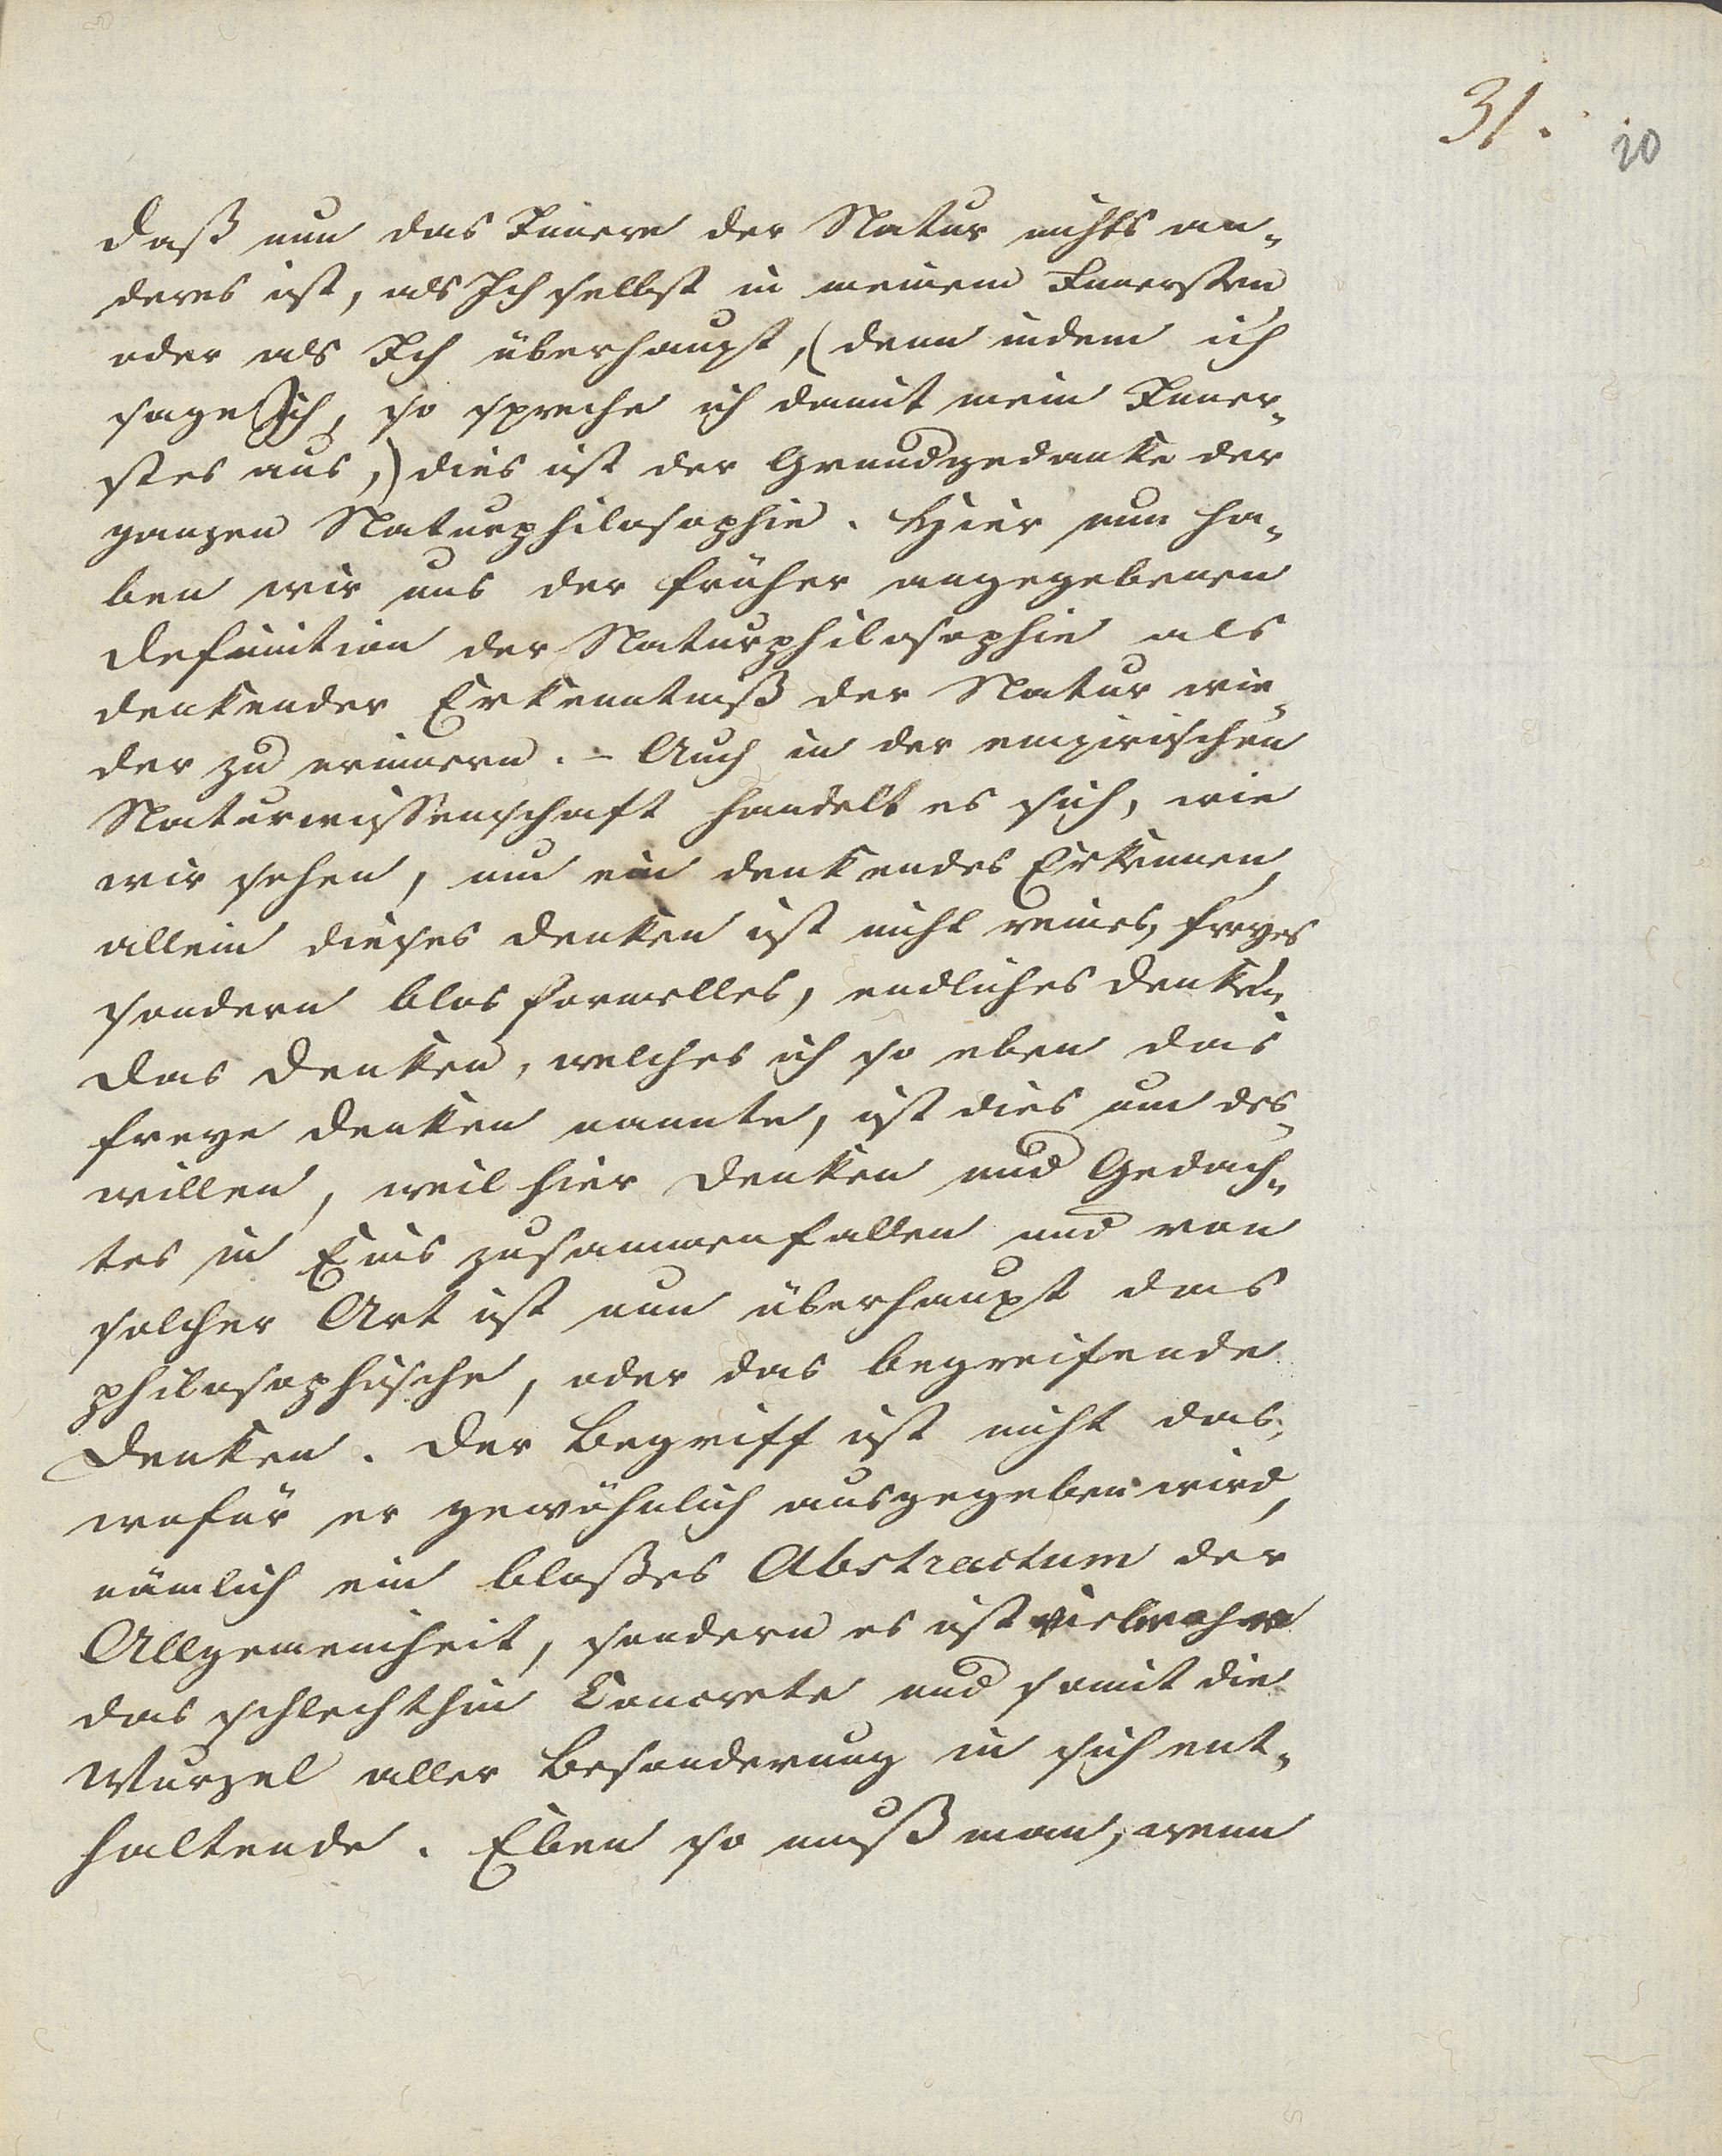 31.
20
Daß nun das Innere der Natur nichts an-
deres ist, als Ich selbst in meinem Innersten
oder als Ich überhaupt, (denn indem ich
sage Ich, so spreche ich damit mein Inner-
stes aus,) dies ist der Grundgedanke der
ganzen Naturphilosophie. Hier nun ha-
ben wir uns der früher angegebenen
Definition der Naturphilosophie als
denkender Erkenntniß der Natur wie-
der zu erinnern. - Auch in der empirischen
Naturwissenschaft handelt es sich, wie
wir sehen, um ein denkendes Erkennen,
allein dieses Denken ist nicht reines, freyes
sondern blos formelles, endliches Denken.
Das Denken, welches ich so eben das
freye Denken nannte, ist dies um des-
willen, weil hier Denken und Gedach-
tes in Eins zusammenfallen und von
solcher Art ist nun überhaupt das
philosophische, oder das begreifende
Denken. Der Begriff ist nicht das,
wofür er gewöhnlich ausgegeben wird,
nämlich ein bloßes Abstractum der
Allgemeinheit, sondern es ist vielmehr
das schlechthin Concrete und somit die
Wurzel aller Besonderung in sich ent-
haltende. Eben so muß man, wenn